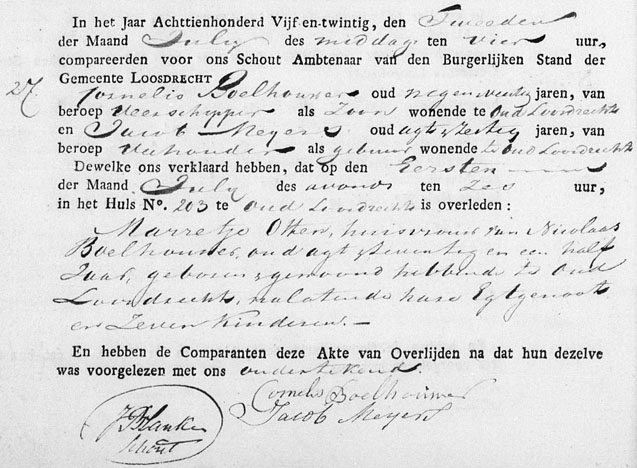 In het Jaar Achttienhonderd Vijf-en-twintig, den Tweeden
der Maand July des middags ten vier uur,
compareerden voor ons Schout Ambtenaar van den Burgerlijken Stand der
Gemeente LOOSDRECHT
27. Cornelis Boelhouwer oud jaren, van
beroep Veerschipper als Zoon wonende te Oud Loosdrecht
en Jacob Meyers oud agt & Zestig jaren, van
beroep als gebuur wonende te Oud Loosdrecht
Dewelke ons verklaard hebben, dat op den Eersten
der Maand July des avonds ten Zes uur,
in het Huis No. 203 te Oud Loosdrecht is overleden:
Marretje Otten, huisvrouw van Nicolaas
Boelhouwer, oud agt & Zeventig en een half
Jaar, geboren & gewoond hebbende te Oud
Loosdrecht, nalatende hare Egtgenoot
en Zeven Kinderen. —
En hebben de Comparanten deze Akte van Overlijden na dat hun dezelve
was voorgelezen met ons ondertekend.
Cornelis Boelhouwer
Jacob Meyers
JBlanke
Schout